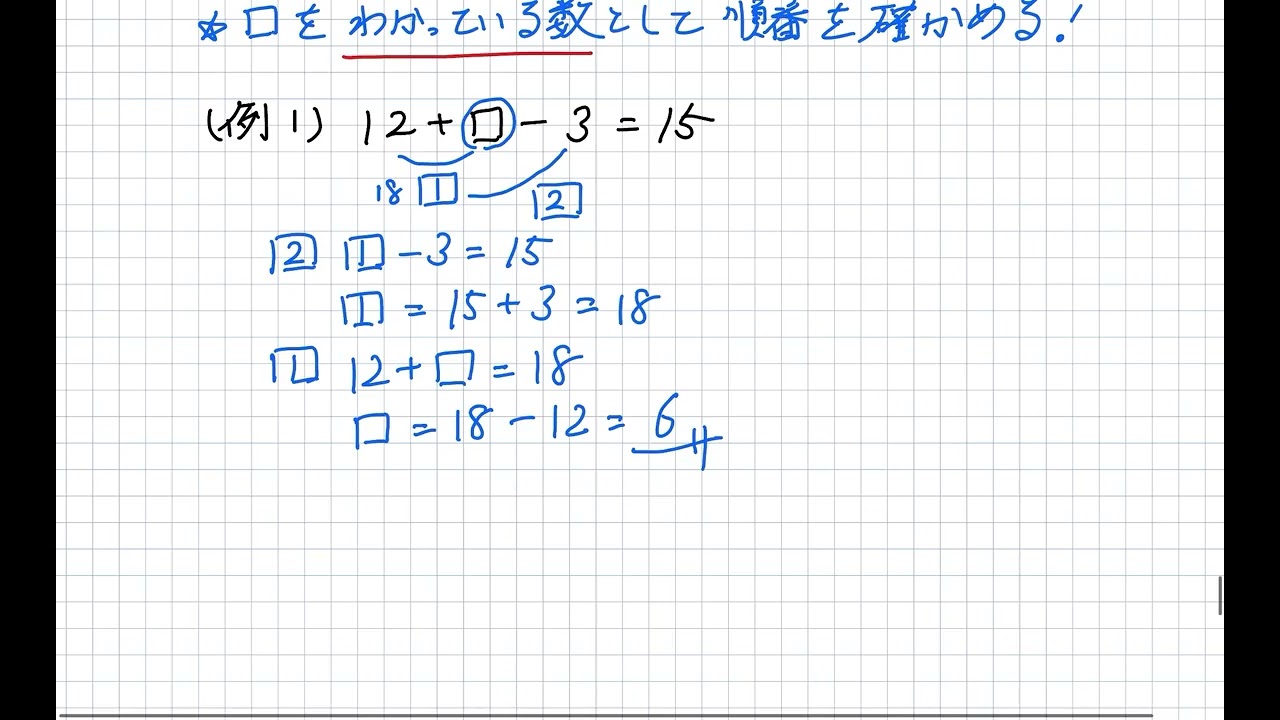 ☆ □をわかっている数として順番を確かめる!
(例1) 12+□-3=15
18 1
2
2 1-3=15
1=15+3=18
1 12+□=18
□=18-12=6